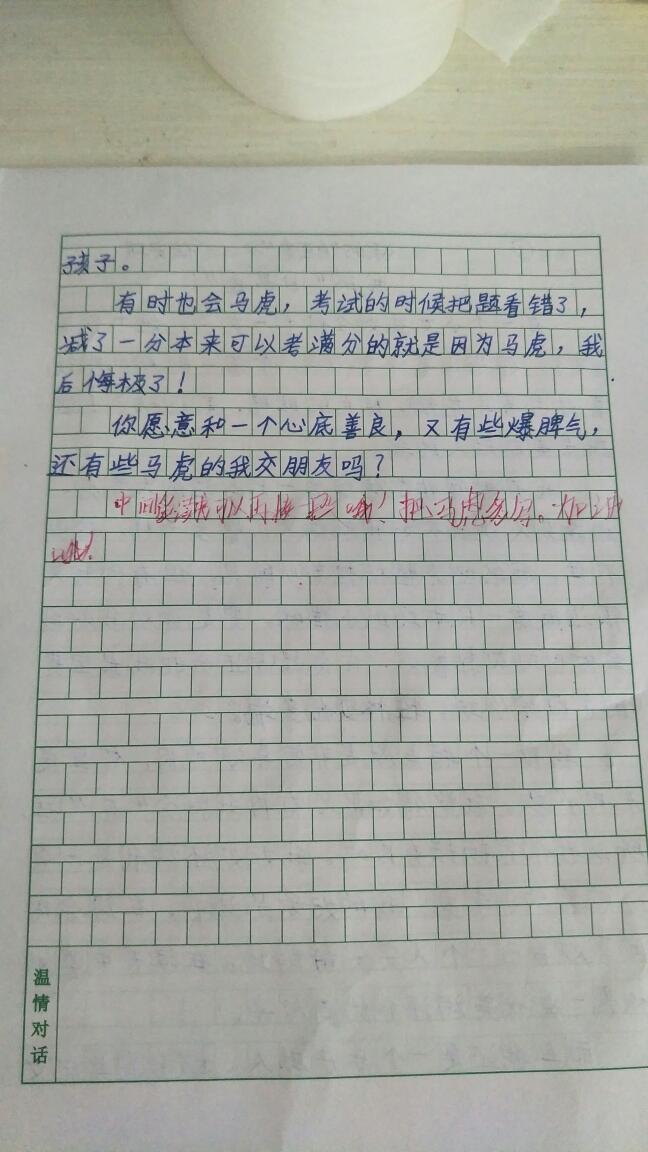 孩子。
有时也会马虎，考试的时候把题看错了，
减了一分本来可以考满分的就是因为马虎，我
后悔极了！
你愿意和一个心底善良，又有些爆脾气，
还有些马虎的我交朋友吗？
中间 可以再 一些哦！把马虎多写。加油
温情对话